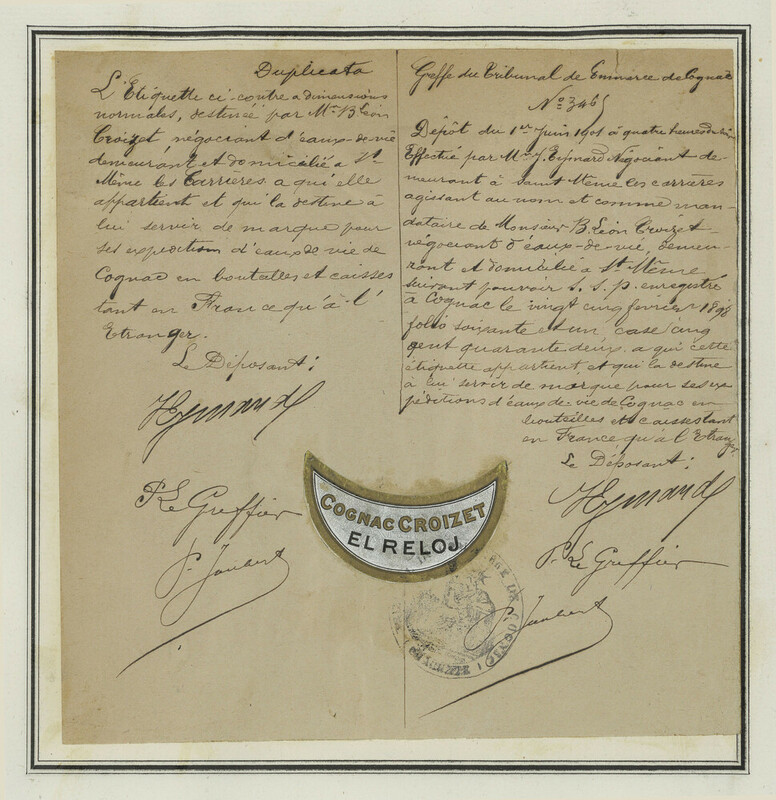 Duplicata
L'Etiquette ci-contre a dimensions
normales, destinée par Mr. B. Léon
Croizet, négociant d'eaux-de-vie
demeurant et domicilié a St
Même les Carrières a qui elle
appartient et qui la destine à
lui servir de marque pour
ses expedition d'eaux de vie de
Cognac en bouteilles et caisses
tant en France qu'à l'
Etranger.
Le Déposant:
P. Le Greffier
P. Joubert
Greffe du Tribunal de Commerce de Cognac
No 3465
Dépôt du 1er Juin 1901 à quatre heures du
Effectué par Mr J. Eymard Négociant de-
meurant à Saint Même les carrières
agissant au nom et comme man-
dataire de Monsieur B. Léon Croizet-
négociant d'eaux-de-vie, demeu-
rant et domicilié à St Même
suivant pouvoir s. s. p. enregistré
à Cognac le vingt cinq février 1898
folio soixante et un case cinq
cent quarante deux. a qui cette
étiquette appartient et qui la destine
à lui servir de marque pour ses ex
péditions d'eaux-de-vie de Cognac en
bouteilles et caisses tant
en France, qu'à l'Etranger
Le Déposant:
P. Le Greffier
P. Joubert
COGNAC CROIZET
EL RELOJ